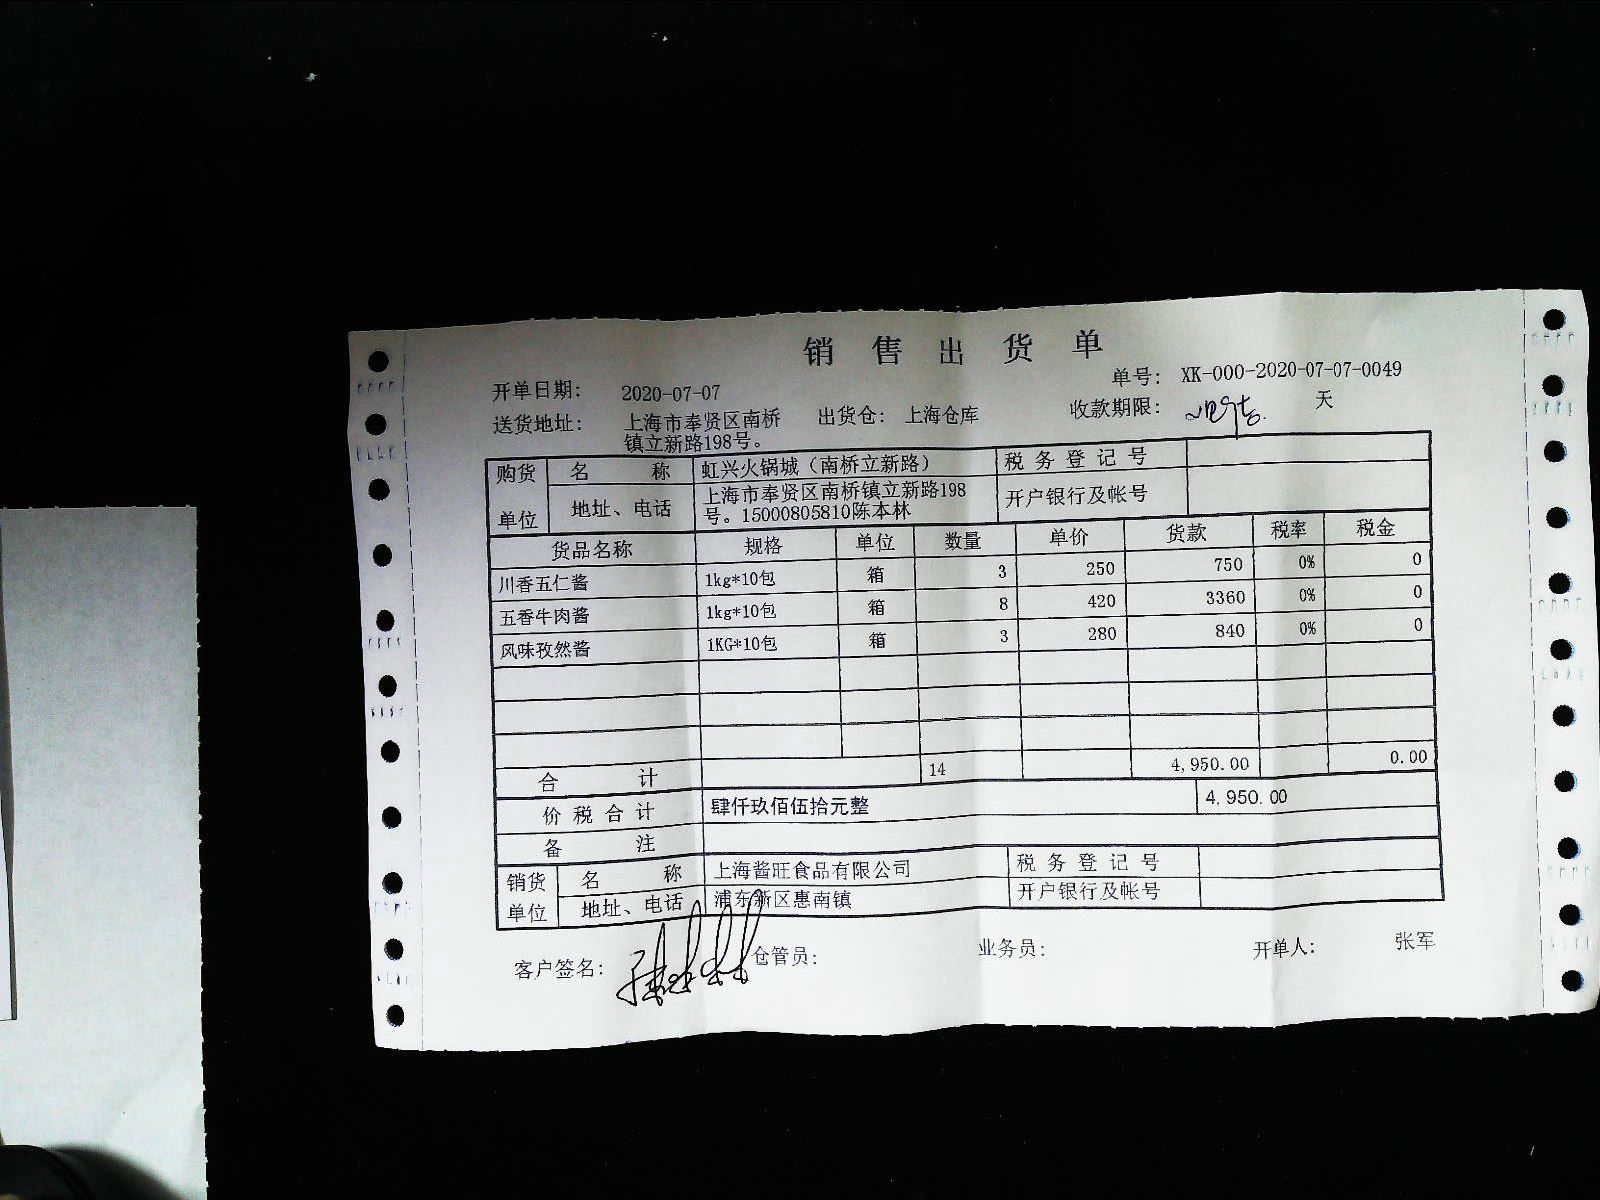 销售出货单
开单日期： 2020-07-07 单号： XK-000-2020-07-07-0049
送货地址： 上海市奉贤区南桥镇立新路198号。 出货仓： 上海仓库 收款期限： 天
购货单位 名称 虹兴火锅城（南桥立新路） 税务登记号
地址、电话 上海市奉贤区南桥镇立新路198号。15000805810陈本林 开户银行及帐号
货品名称 规格 单位 数量 单价 货款 税率 税金
川香五仁酱 1kg*10包 箱 3 250 750 0% 0
五香牛肉酱 1kg*10包 箱 8 420 3360 0% 0
风味孜然酱 1KG*10包 箱 3 280 840 0% 0
合计 14 4,950.00 0.00
价税合计 肆仟玖佰伍拾元整 4,950.00
备注
销货单位 名称 上海酱旺食品有限公司 税务登记号
地址、电话 浦东新区惠南镇 开户银行及帐号
客户签名： 仓管员： 业务员： 开单人： 张军